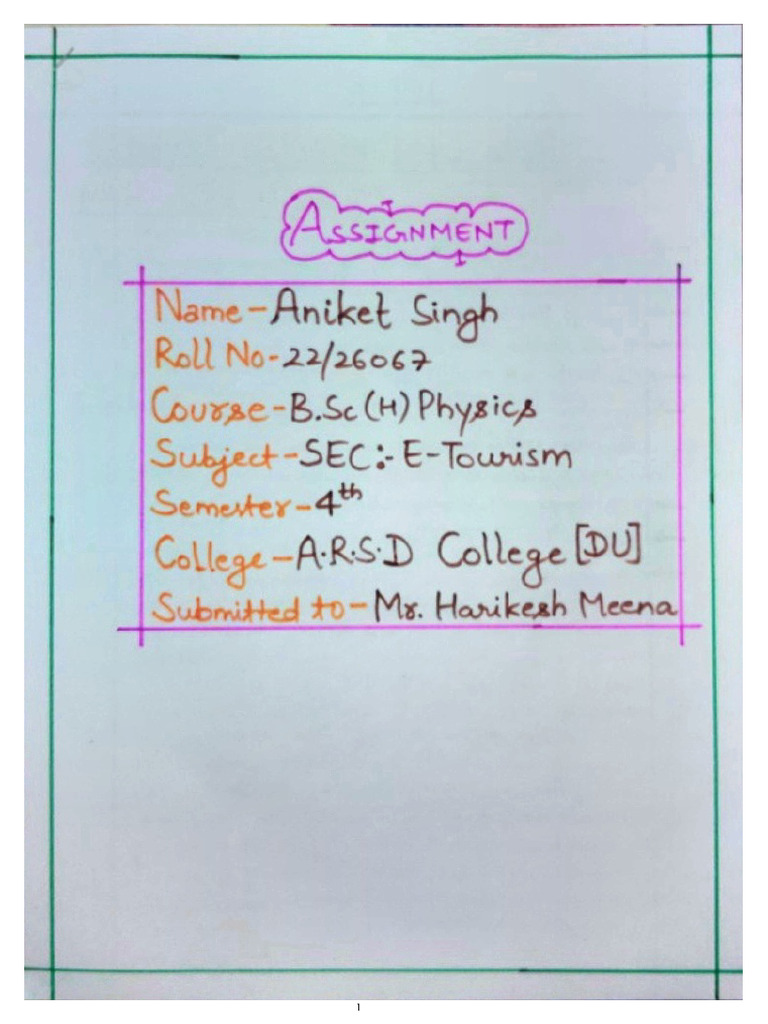 ASSIGNMENT
Name - Aniket Singh
Roll No - 22/26067
Course - B.Sc (H) Physics
Subject - SEC :- E-Tourism
Semester - 4th
College - A.R.S.D College [DU]
Submitted to - Mr. Harikesh Meena
1